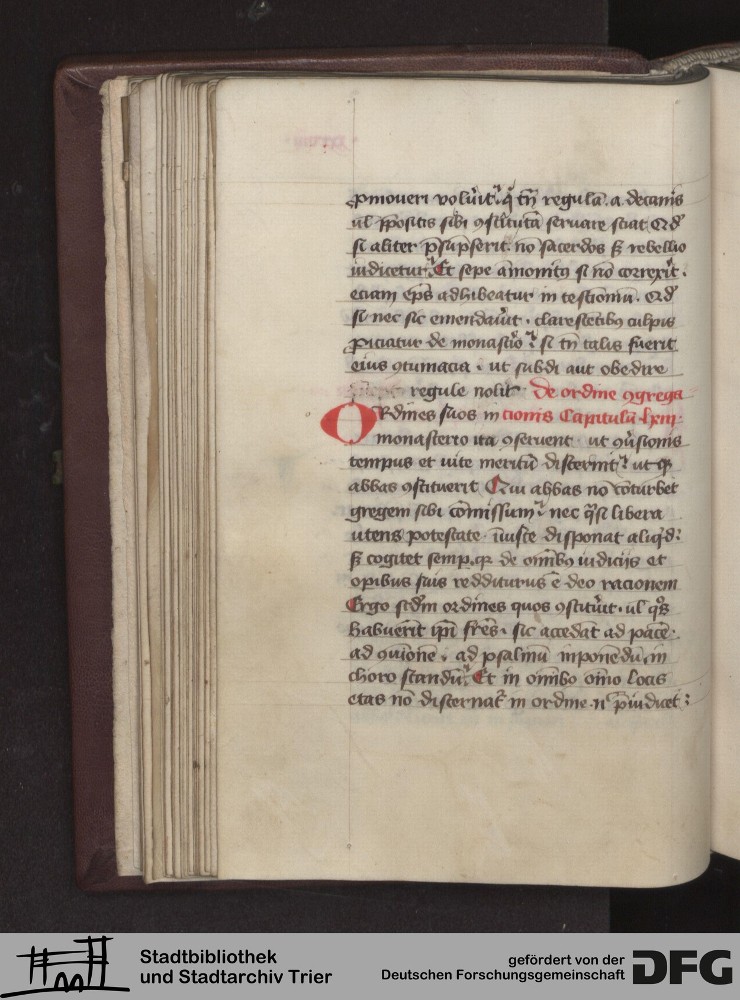 ꝓmoueri voluerit. qui tn̄ regulā a decanis
ul̄ p̄positis sibi ꝯstitutā seruare sciat Qd̓
si aliter p̄sūpserit. nō sacerdos sꝫ rebellio
iudicetur. Et sepe amonitꝰ si nō correxit.
eciam ep̄s adhibeatur in testimōiū. Qd̓
si nec sic emendauīt. clarescētibꝰ culpis
ꝓiciatur de monast̓io. si tn̄ talis fuerit
eius ꝯtumacia. ut subdi aut obedire
regule nolit De ordine ꝯgrega
ORdines suos in cionis Capitulū lxiii.
monasterio ita ꝯseruent ut ꝯu̓sionis
tempus et uite meritū discernit. ut qꝫ
abbas ꝯstituerit Qui abbas nō cōturbet
gregem sibi cōmissum. nec q̄si libera
utens potestate iniuste disponat aliq̓d:
sꝫ cogitet semꝑ. qꝫ de om̄ibꝰ iudicijs et
opibus suis redditurus ē deo racionem
Ergo scd̄m ordines quos ꝯstitu̓it. ul̄ qͦs
habuerīt ip̄i fr̄es. sic accedāt ad pacē.
ad ꝯuionē. ad psalmū inponēdū in
choro standū. Et in om̄ibꝰ om̄io locis
etas nō discernat̓ in ordine. nͨ p̄iudicet:
Stadtbibliothek
und Stadtarchiv Trier
gefördert von der
Deutschen Forschungsgemeinschaft
DFG